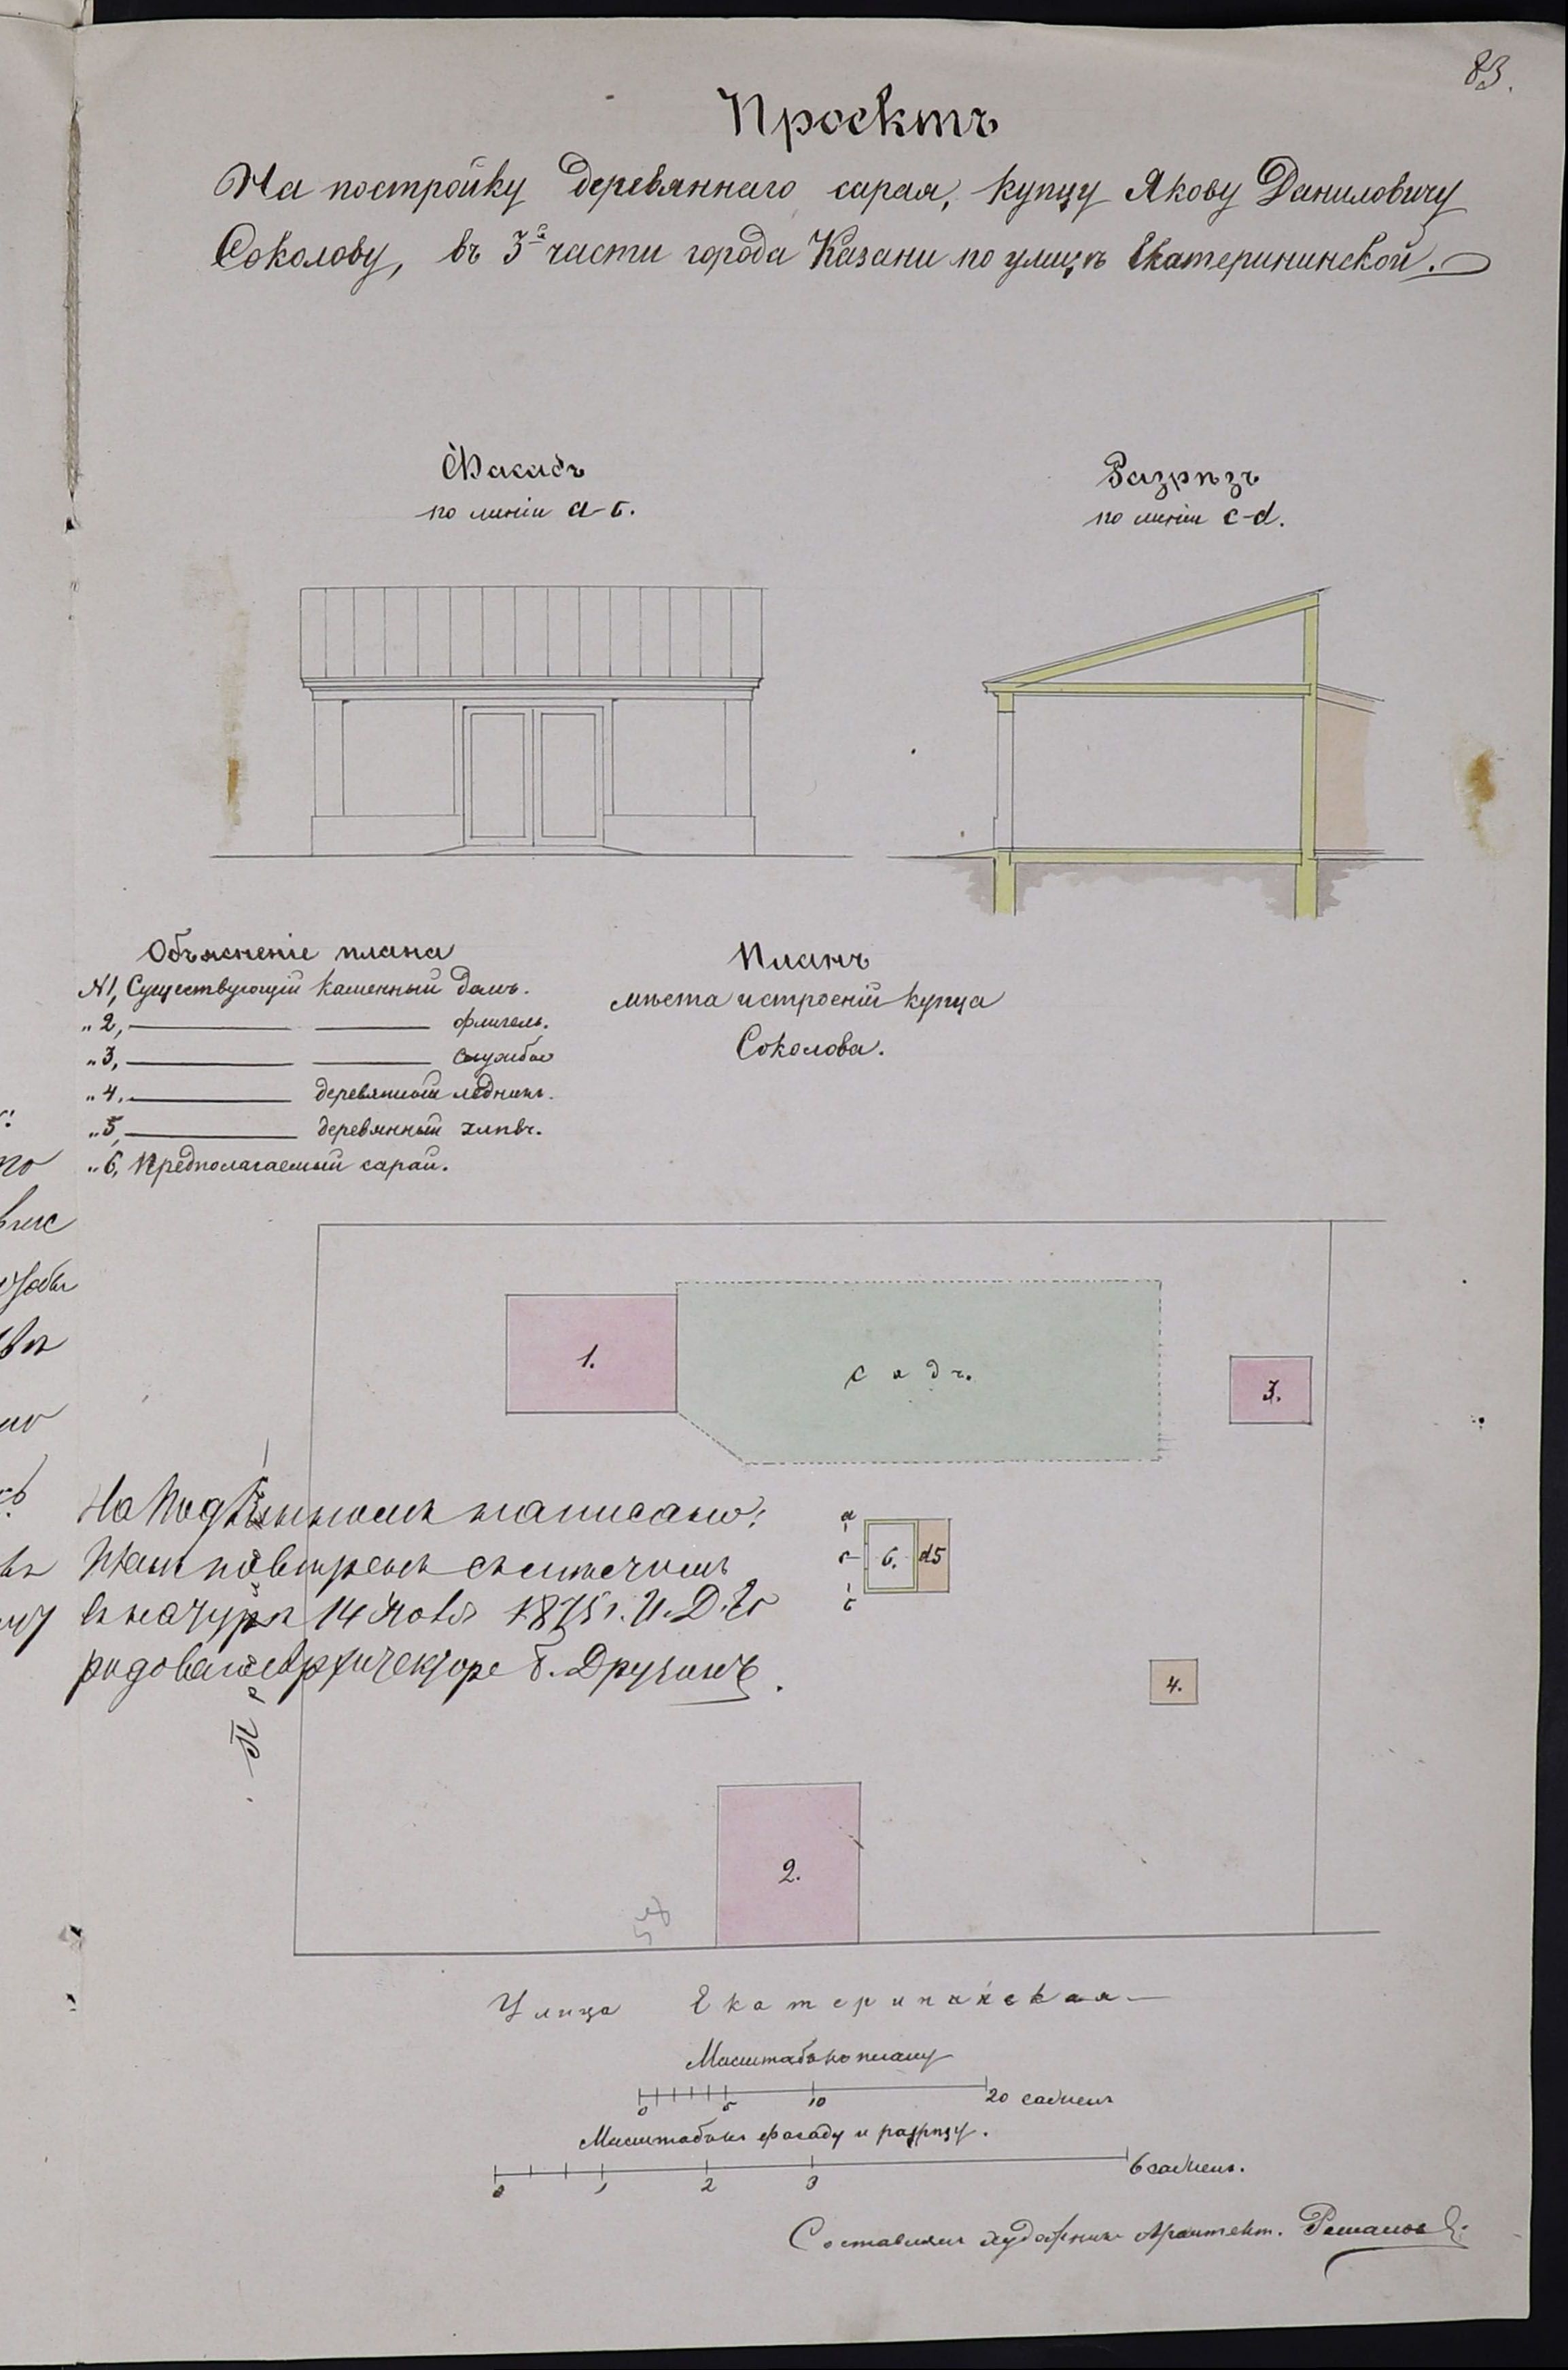 83.
Проектъ
На постройку деревяннаго сарая, купцу Якову Даниловичу
Соколову, въ 3й части города Казани по улицѣ Екатерининской.
Фасадъ
по линіи а-б.
Разрѣзъ
по линіи c-d.
Объясненіе плана
№1, Существующій каменный домъ.
„2, флигель.
„3, службы
„4, деревянный ледникъ.
„5, деревянный хлѣвъ.
„6, Предполагаемый сарай.
Планъ
мѣста и строеній купца
Соколова.
1.
садъ.
3.
На подлинномъ написано:
Планъ повѣренъ съ мѣстомъ
въ натурѣ 14 Ноября 1875 г. И. Д. Го
родоваго Архитектора
а
с
б
6.
d5
4.
2.
Улица Екатерининская
Масштабъ къ плану
0 5 10 20 сажень
Масштабъ къ фасаду и разрѣзу.
0 1 2 3 6 сажень.
Составлялъ художникъ Архитект. Романовъ